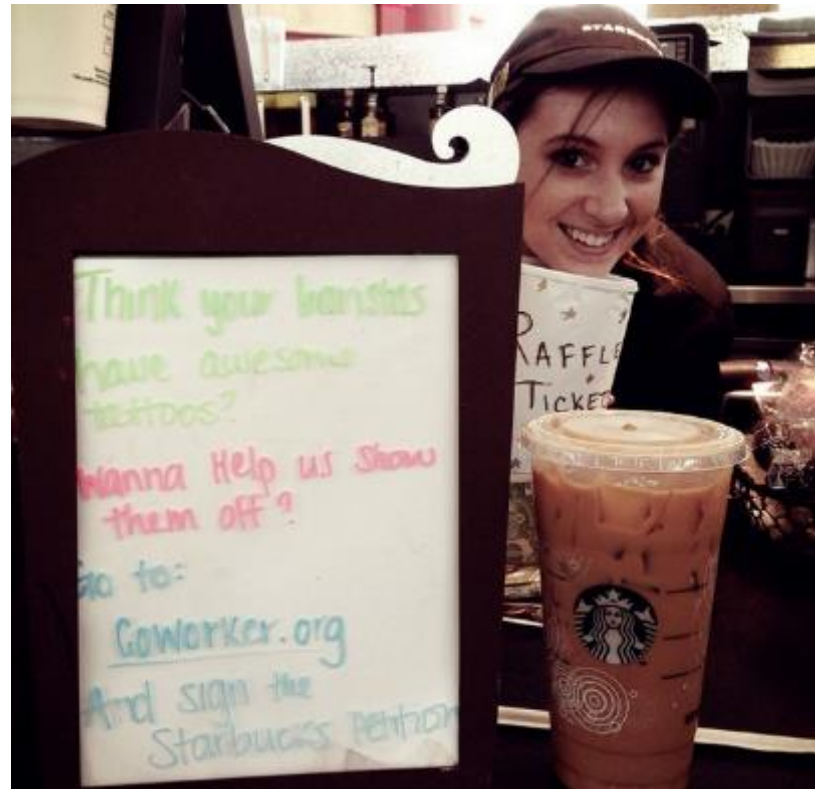 STARBUCKS
Think your baristas
have awesome
tattoos?
Wanna Help us show
them off?
Go to:
Coworker.org
And sign the
Starbucks Petition
RAFFLE
TICKE